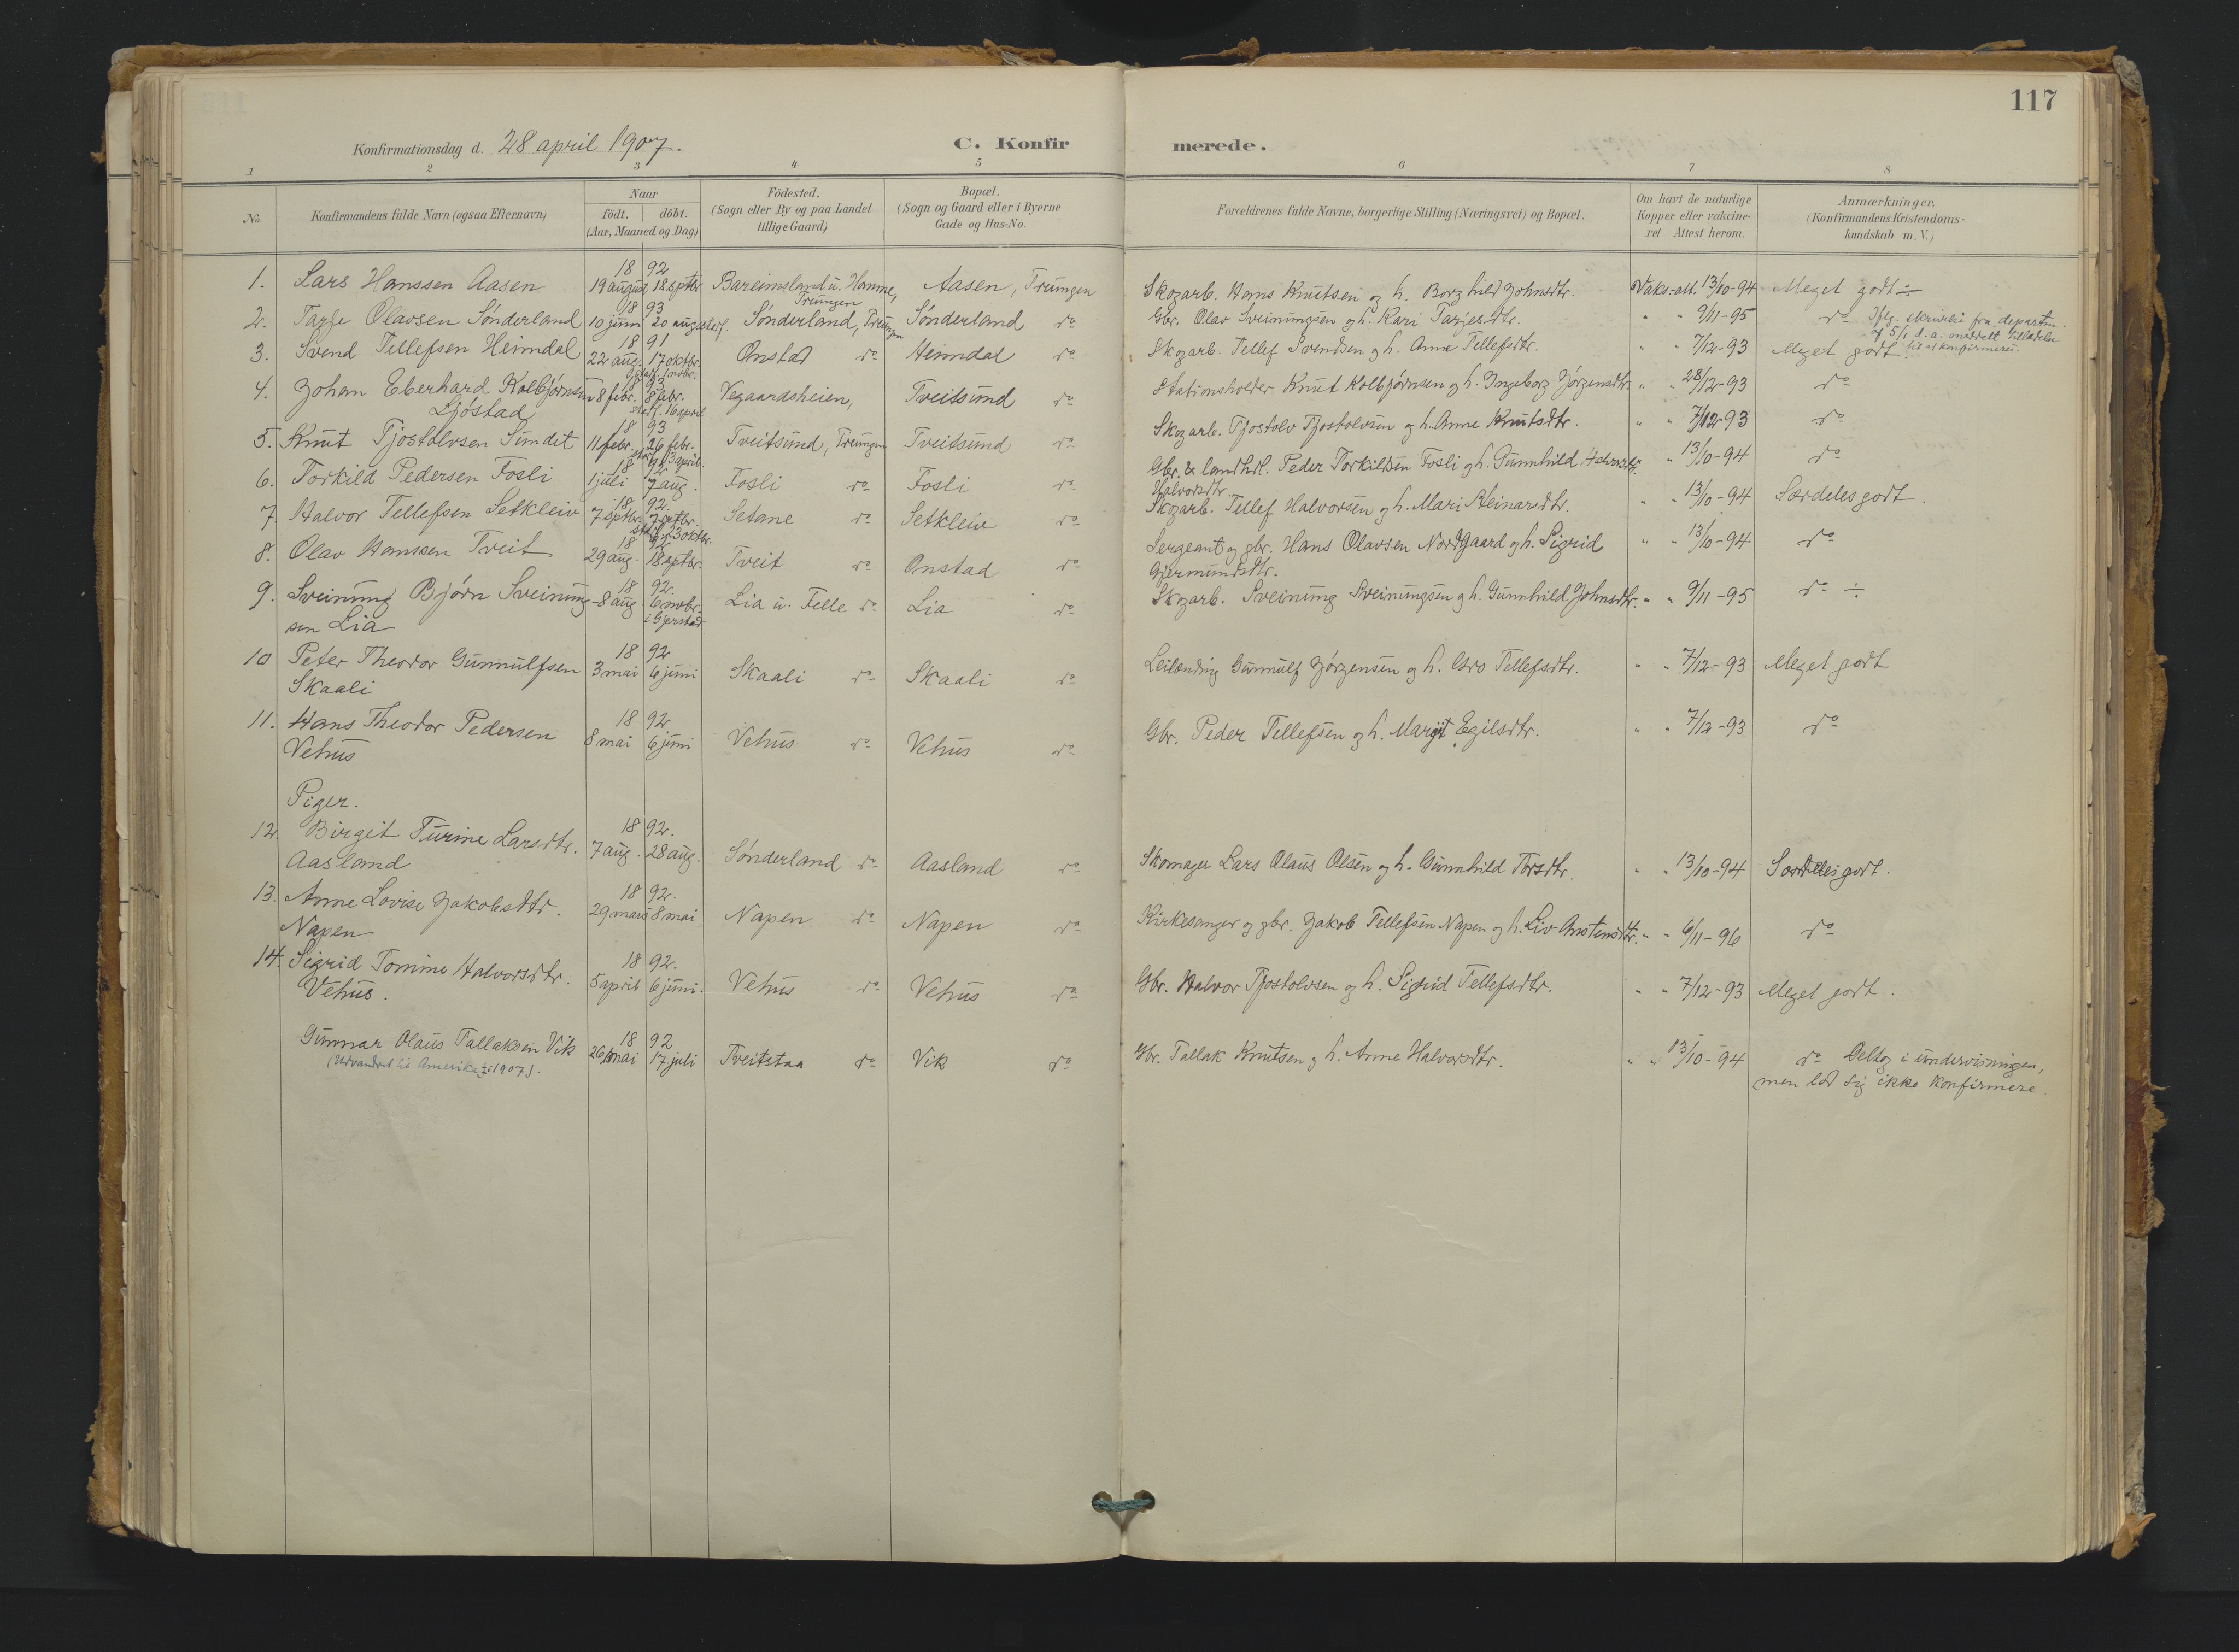 117
Konfirmationsdag d. 28 april 1907.
C. Konfirmerede.
1 2 3 4 5 6 7 8
No. Konfirmandens fulde Navn (ogsaa Efternavn) Naar født. døbt. (Aar, Maaned og Dag) Födested. (Sogn eller By og paa Landet tillige Gaard) Bopæl. (Sogn og Gaard eller i Byerne Gade og Hus-No. Forældrenes fulde Navne, borgerlige Stilling (Næringsvei) og Bopæl. Om havt de naturlige Kopper eller vakcineret. Attest herom. Anmærkninger. (Konfirmandens Kristendomskundskab m. V.)
18 92
1. Lars Hanssen Aasen 19 august 18 sptbr Bareimsland u. Hamme, Treungen Aasen, Treungen Skogarb. Hans Knutsen og h. Borghild Johnsdtr. Vaks.-att. 13/10-94 Meget godt ÷
18 93
2. Tarje Olavsen Sønderland 10 juni 20 aug. Sønderland, Treungen Sønderland do Gbr. Olav Sveinungsen og h. Kari Tarjesdtr. " " 9/11-95 do Iflg. skrivelse fra departm. af 5/1 d. a. meddelt tilladelse til at konfirmeres.
18 91
3. Svend Tellefsen Heimdal 22 aug. 17 oktbr. stadf. 1 novbr. Onstad do Heimdal do Skogarb. Tellef Svendsen og h. Anne Tellefsdtr. " " 7/12-93 Meget godt
18 93
4. Johan Eberhard Kolbjørnsen Ljøstad 8 febr. 8 febr. stadf. 16 april Vegaardsheien, Tveitsund do Stationsholder Knut Kolbjørnsen og h. Ingeborg Jørgensdtr. " " 28/12-93 do
18 93
5. Knut Tjostolvsen Sundet 11 febr. 26 febr. stadf. 3 april. Tveitsund, Treungen Tveitsund do Skogarb. Tjostolv Tjostolvsen og h. Anne Knutsdtr. " " 7/12-93 do
18 92
6. Torkild Pedersen Fosli 1 juli 7 aug. Fosli do Fosli do Gbr. & landhdl. Peder Torkildsen Fosli og h. Gunnhild Halvorsdtr. " 13/10-94 do
18 92.
7. Halvor Tellefsen Setkleiv 7 sptbr. 7 sptbr. stadf. 23 oktbr. Setane do Setkleiv do Skogarb. Tellef Halvorsen og h. Mari Steinarsdtr. " " 13/10-94 Særdeles godt.
18 92
8. Olav Hanssen Tveit 29 aug. 18 sptbr. Tveit do Onstad do Sergeant og gbr. Hans Olavsen Nordgaard og h. Sigrid Gjermundsdtr. " " 13/10-94 do
18 92.
9. Sveinung Bjørn Sveinung- 8 aug. 6 novbr. i Gjerstad Lia u. Felle do Lia do Skogarb. Sveinung Sveinungsen og h. Gunnhild Johnsdtr. " " 9/11-95 do ÷
sen Lia
18 92
10 Peter Theodor Gunnulfsen 3 mai 6 juni Skaali do Skaali do Leilending Gunnulf Jørgensen og h. Gro Tellefsdtr. " " 7/12-93 Meget godt
Skaali
18 92
11. Hans Theodor Pedersen 8 mai 6 juni Vehus do Vehus do Gbr. Peder Tellefsen og h. Margit Egilsdtr. " " 7/12-93 do
Vehus
Piger.
18 92.
12. Birgit Turine Larsdtr. 7 aug. 28 aug. Sønderland do Aasland do Skomager Lars Olaus Olsen og h. Gunnhild Torsdtr. " " 13/10-94 Særdeles godt.
Aasland
18 92.
13. Anne Lovise Jakobsdtr. 29 mars 8 mai Napen do Napen do Kirkesanger og gbr. Jakob Tellefsen Napen og h. Liv Anstensdtr. " " 6/11-96 do
Napen
18 92.
14. Sigrid Tomine Halvorsdtr. 5 april 6 juni. Vehus do Vehus do Gbr. Halvor Tjostolvsen og h. Sigrid Tellefsdtr. " " 7/12-93 Meget godt.
Vehus.
18 92
Gunnar Olaus Tallaksen Vik 26 mai 17 juli Tveitstaa do Vik do Gbr. Tallak Knutsen og h. Anne Halvorsdtr. " " 13/10-94 do Deltog i undervisningen,
(Udvandret til Amerika i 1907). men lod sig ikke konfirmere.